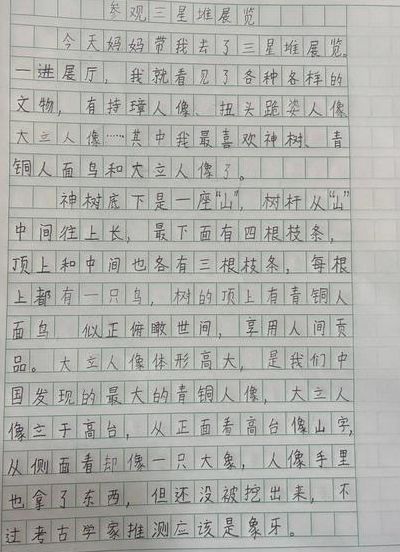 参观三星堆展览
今天妈妈带我去了三星堆展览。
一进展厅，我就看见了各种各样的
文物，有持璋人像、扭头跪姿人像、
大立人像……其中我最喜欢神树、青
铜人面鸟和大立人像了。
神树底下是一座“山”，树杆从“山”
中间往上长，最下面有四根枝条，
顶上和中间也各有三根枝条，每根
上都有一只鸟，树的顶上有青铜人
面鸟，似正俯瞰世间，享用人间贡
品。大立人像体形高大，是我们中
国发现的最大的青铜人像，大立人
像立于高台，从正面看高台像山字，
从侧面看却像一只大象，人像手里
也拿了东西，但还没被挖出来，不
过考古学家推测应该是象牙。